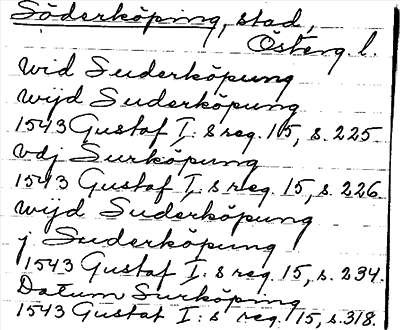 Söderköping, stad,
Österg. l.
wid Suderköpung
wijd Suderköpung
1543 Gustaf I: s reg. 15, s. 225.
vdj Surköpung
1543 Gustaf I, s reg. 15, s. 226.
wijd Suderköpung
j Suderköpung
1543 Gustaf I: s reg. 15, s. 234.
Datum Surköping
1543 Gustaf I: s reg. 15, s. 318.